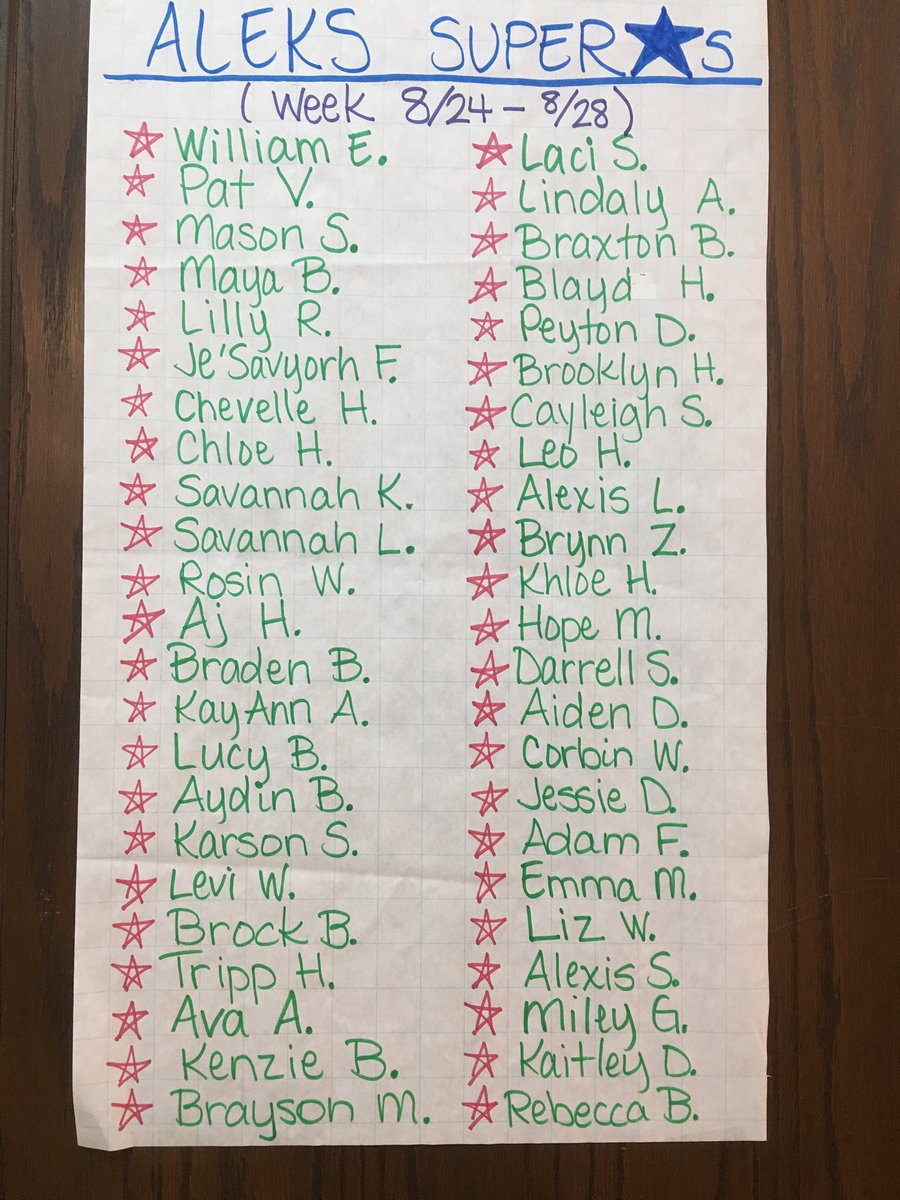 ALEKS SUPER★s
(Week 8/24 - 8/28)
William E.
Pat V.
Mason S.
Maya B.
Lilly R.
Je'Savyorh F.
Chevelle H.
Chloe H.
Savannah K.
Savannah L.
Rosin W.
Aj H.
Braden B.
KayAnn A.
Lucy B.
Aydin B.
Karson S.
Levi W.
Brock B.
Tripp H.
Ava A.
Kenzie B.
Brayson M.
Laci S.
Lindaly A.
Braxton B.
Blayd H.
Peyton D.
Brooklyn H.
Cayleigh S.
Leo H.
Alexis L.
Brynn Z.
Khloe H.
Hope M.
Darrell S.
Aiden D.
Corbin W.
Jessie D.
Adam F.
Emma M.
Liz W.
Alexis S.
Miley G.
Kaitley D.
Rebecca B.